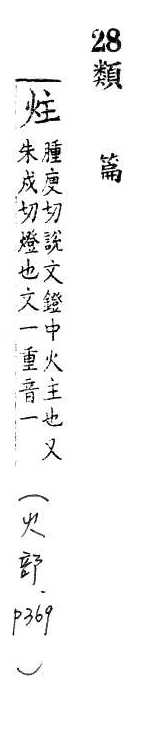 28類篇
炷
腫庾切說文鐙中火主也又
朱戍切燈也文一重音一
（火部．p369）